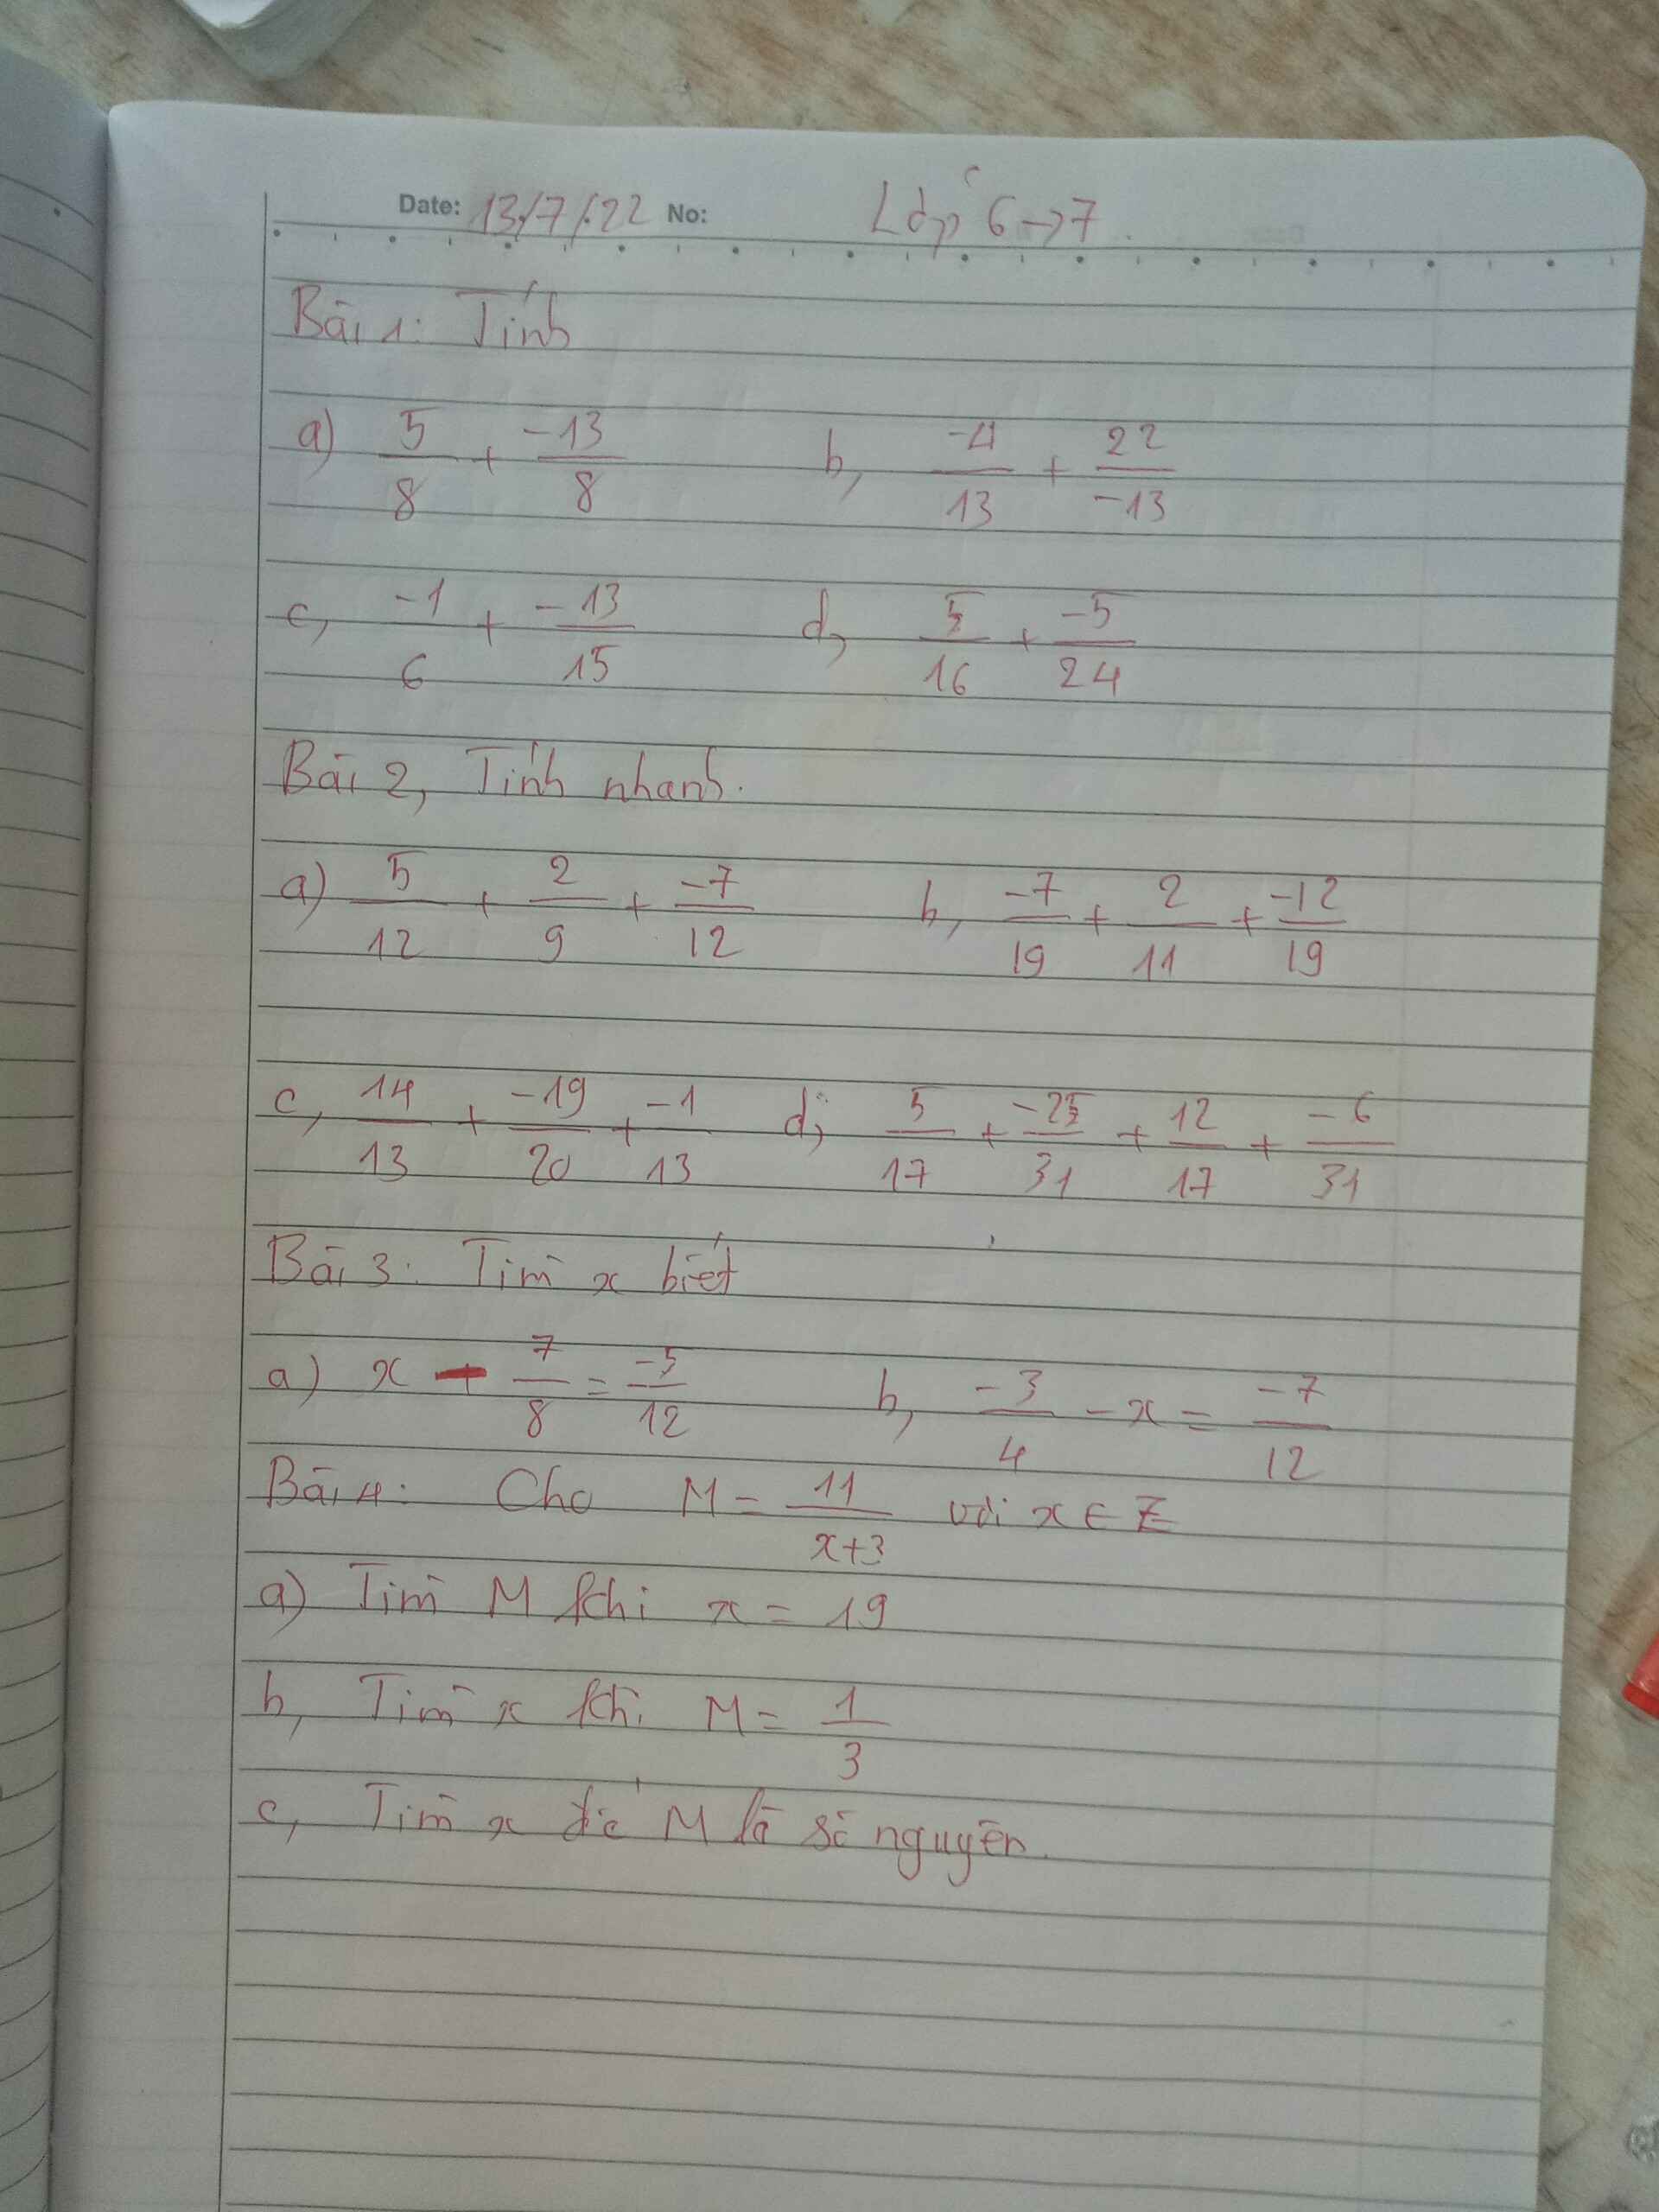 Date: 13/7/22 No: Lớp 6→7.
Bài 1: Tính
a) 5/8 + -13/8 b, -4/13 + 22/-13
c, -1/6 + -13/15 d, 5/16 + -5/24
Bài 2, Tính nhanh.
a) 5/12 + 2/9 + -7/12 b, -7/19 + 2/11 + -12/19
c, 14/13 + -19/20 + -1/13 d, 5/17 + -25/31 + 12/17 + -6/31
Bài 3: Tìm x biết
a) x - 7/8 = -5/12 b, -3/4 - x = -7/12
Bài 4: Cho M = 11/x+3 với x ∈ Z
a) Tìm M khi x = 19
b, Tìm x khi M = 1/3
c, Tìm x để M là số nguyên.